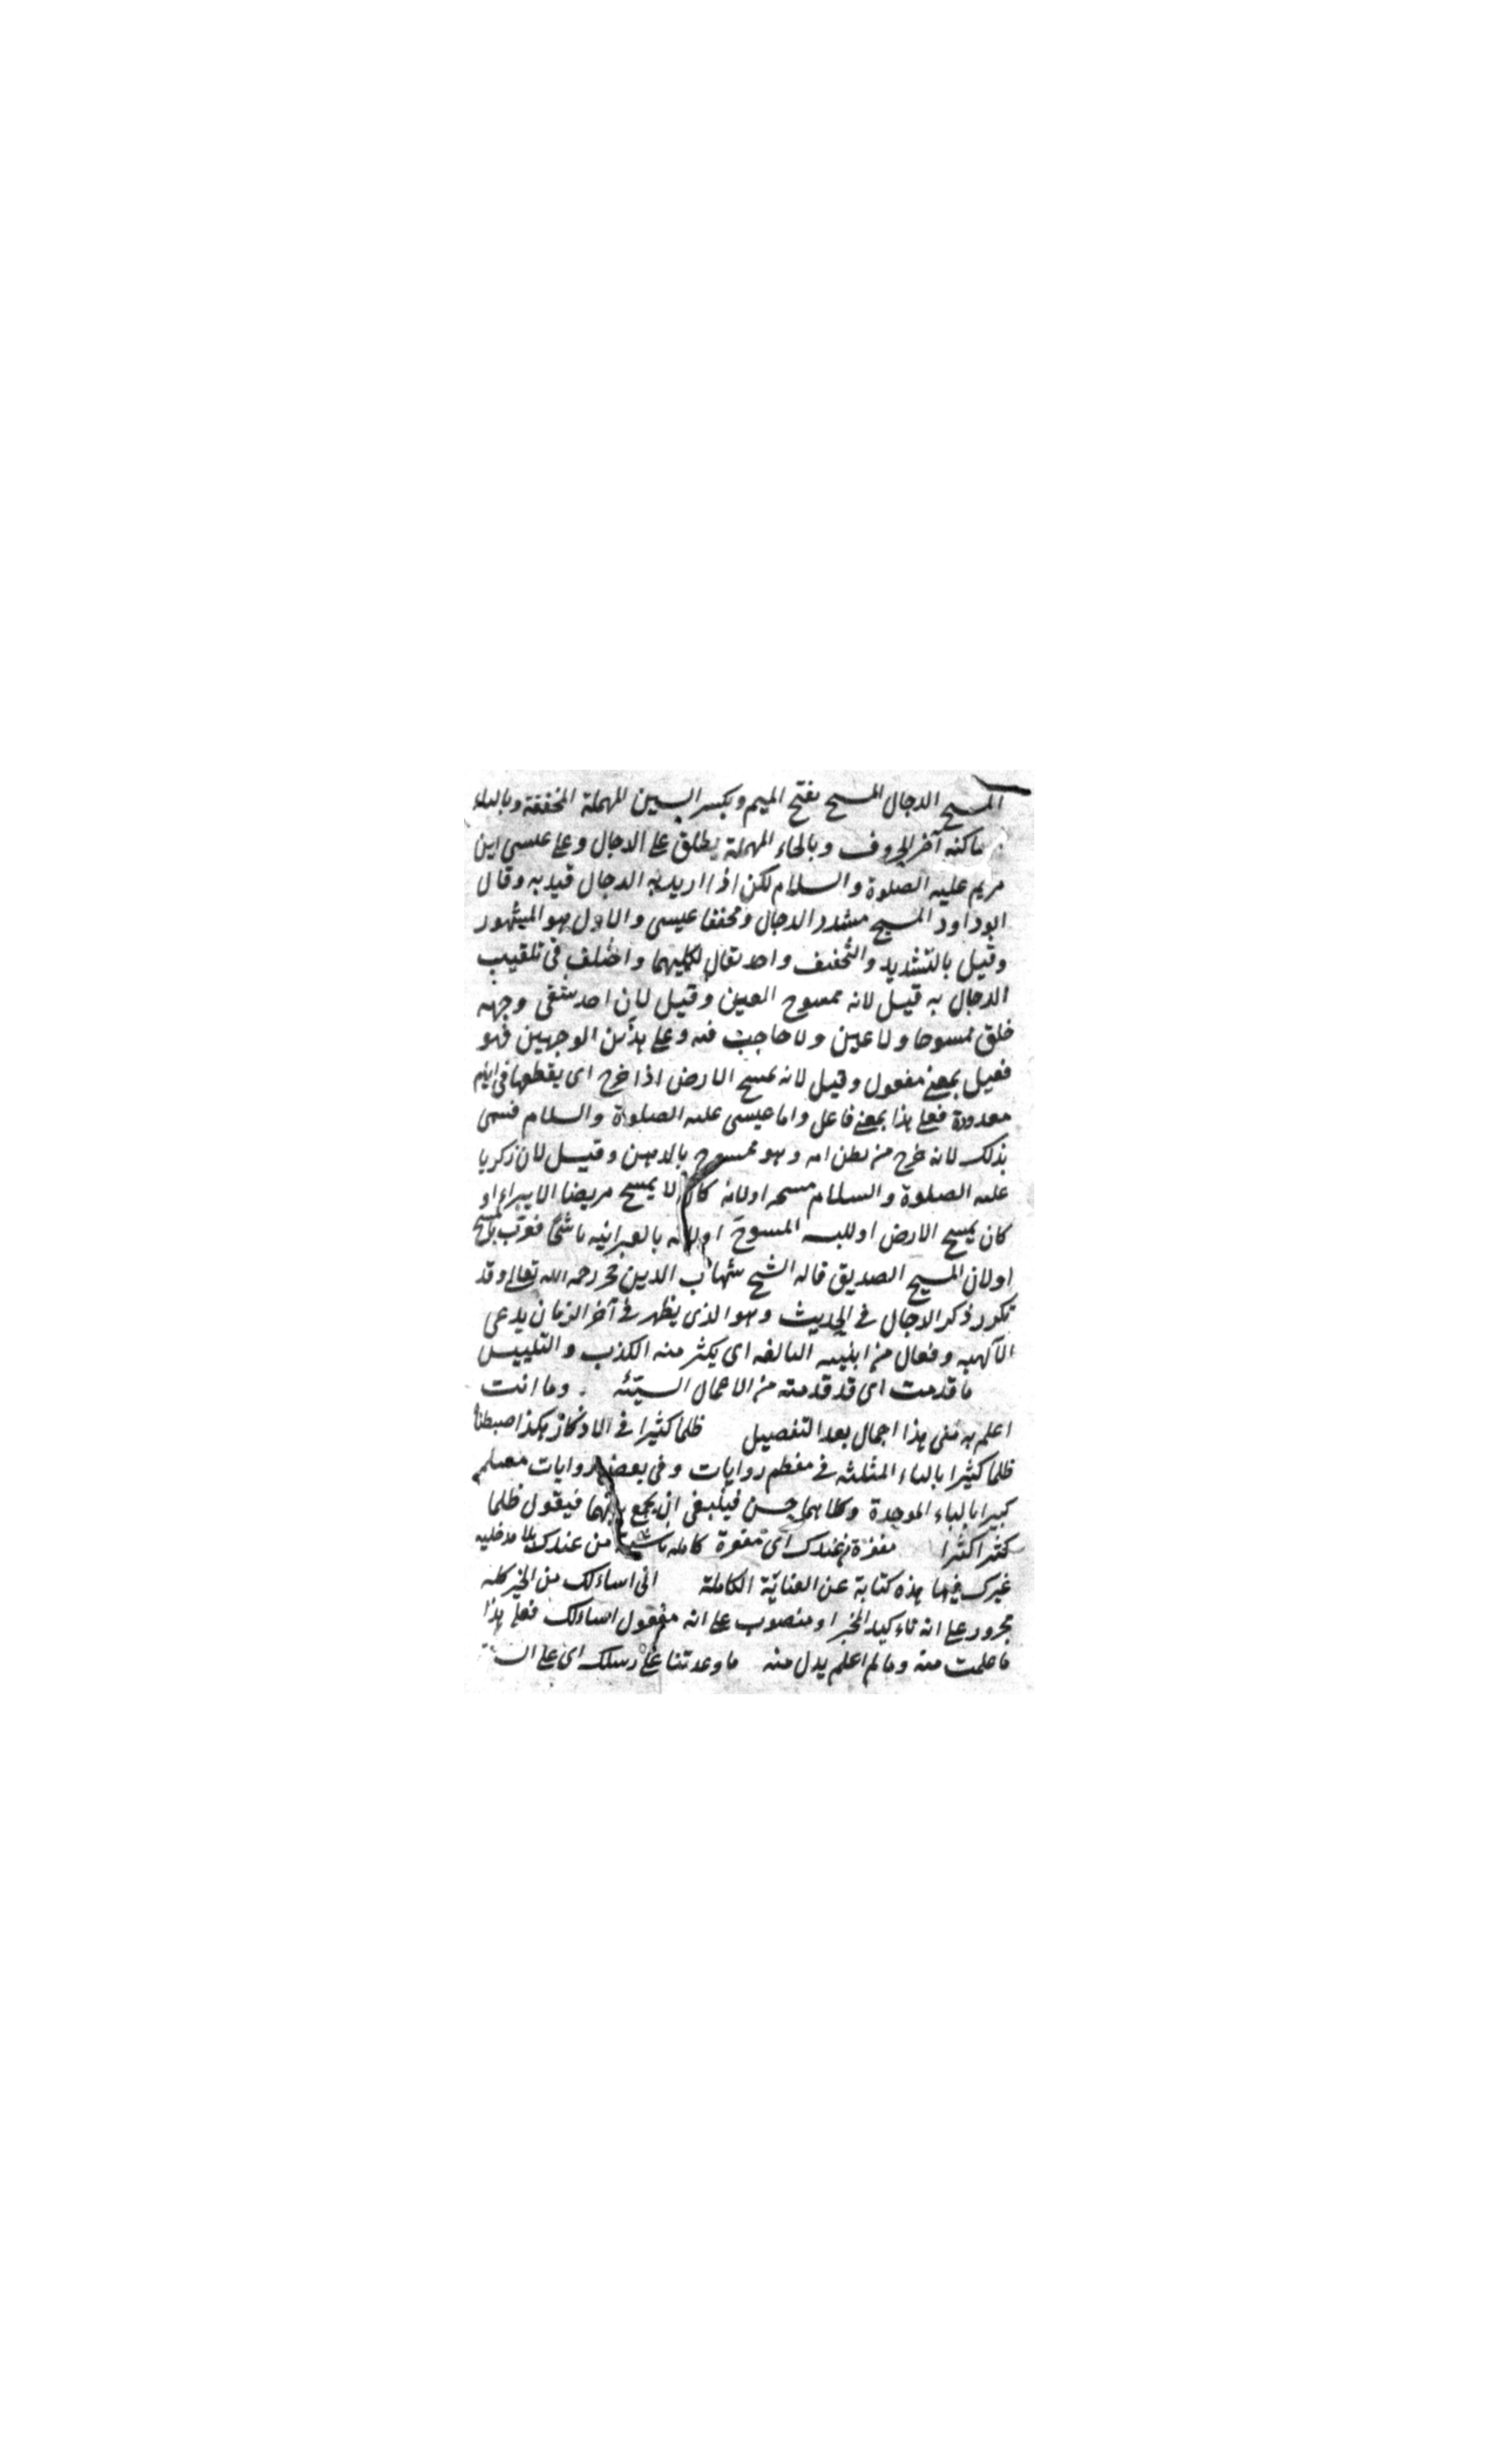 المسيح الدجال المسيح بفتح الميم وبكسر السين المهملة المخففة وبالياء
ساكنه آخر الحروف وبالحاء المهملة يطلق على الدجال وعلى عيسى ابن
مريم عليه الصلوة والسلام لكن اذا اريد به الدجال قيد به وقال
ابو داود المسيح مشدد الدجال ومخففا عيسى والاول هو المشهور
وقيل بالتشديد والتخفيف واحد يقال لكليهما واختلف في تلقيب
الدجال به قيل لانه ممسوح العين وقيل لان احد شقى وجهه
خلق ممسوحا ولا عين ولا حاجب فيه وعلى هذين الوجهين فهو
فعيل بمعنى مفعول وقيل لانه يمسح الارض اذا خرج اى يقطعها في ايام
معدودة فعلى هذا بمعنى فاعل واما عيسى عليه الصلوة والسلام فسمى
بذلك لانه خرج من بطن امه وهو ممسوح بالدهن وقيل لان زكريا
عليه الصلوة والسلام مسحه او لانه كان لا يمسح مريضا الا يبراء او
كان يمسح الارض او للبسه المسوح او لانه بالعبرانيه ماشحا فعرب بالمسيح
او لان المسيح الصديق قاله الشيخ شهاب الدين حجر رحمه الله تعالى وقد
تكرر ذكر الدجال في الحديث وهو الذى يظهر في آخر الزمان يدعى
الآلهيه وفعال من ابنيه المبالغه اى يكثر منه الكذب والتلبيس
ما قدمت اى قد قدمته من الاعمال السيئه . وما انت
اعلم به منى هذا اجمال بعد التفصيل ظلما كثيرا في الاذكار هكذا ضبطناه
ظلما كثيرا بالثاء المثلثه في معظم روايات وفي بعض روايات مسلم
كبيرا بالباء الموحدة وكلاهما حسن فينبغى ان يجمع بينهما فيقول ظلما
كثيرا كبيرا مغفرة من عندك اى مغفرة كامله ناشية من عندك بلا مدخليه
غيرك فيها هذه كناية عن العناية الكاملة انى اساءلك من الخير كله
مجرور على انه تاءكيد الخير او منصوب على انه مفعول اساءلك فعلى هذا
ما علمت منه وما لم اعلم بدل منه ما وعدتنا على رسلك اى على